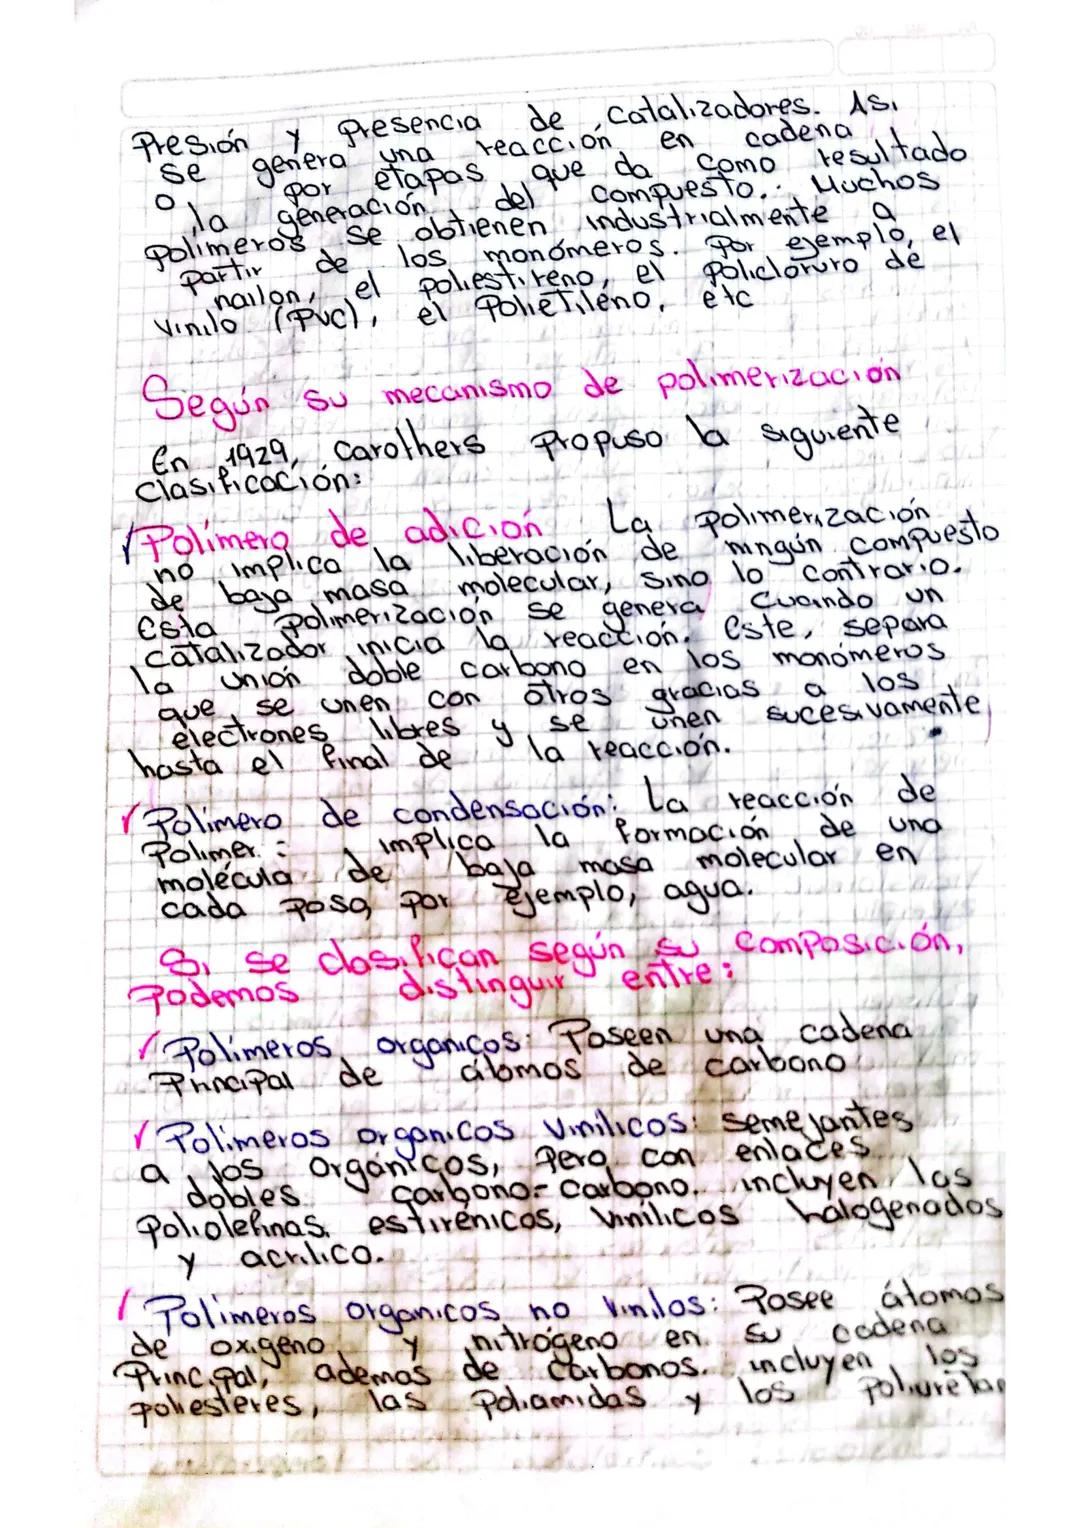 Presión y presencia de catalizadores. Asi
se genera una reacción en cadena
o por etapas que da como resultado
la generación del compuesto. Muchos
polimeros se obtienen industrialmente a
partir de los monómeros. Por ejemplo, el
nailon, el poliestireno, el policloruro de
vinilo (PVC), el Polietileno, etc
Según su mecanismo de polimerización
En 1929, Carothers propuso la siguiente
clasificación:
Polimero de adición La polimerización
no implica la liberación de ningún compuesto
de baja masa molecular, sino lo contrario.
Esta polimerización se genera cuando un
catalizador inicia la reacción. Este, separa
la unión doble carbono en los monómeros
que se unen con otros gracias a los
electrones libres y se unen sucesivamente
hasta el final de la reacción.
Polimero de condensación: La reacción de
Polimer. : implica la formación de una
molécula de baja masa molecular en
cada paso, por ejemplo, agua.
Si se clasifican según su composición,
Podemos distinguir entre:
Polimeros organicos: Poseen una cadena
Principal de átomos de carbono
Polimeros organicos vinilicos: semejantes
a los orgánicos, pero con enlaces
dobles carbono-carbono. incluyen las
poliolefinas. estirenicos, vinilicos halogenados
y acrilico.
Polimeros organicos no vinilos: Posee átomos
de oxigeno y nitrógeno en su cadena
Principal, ademas de carbonos. incluyen los
poliesteres, las poliamidas y los poliuretan